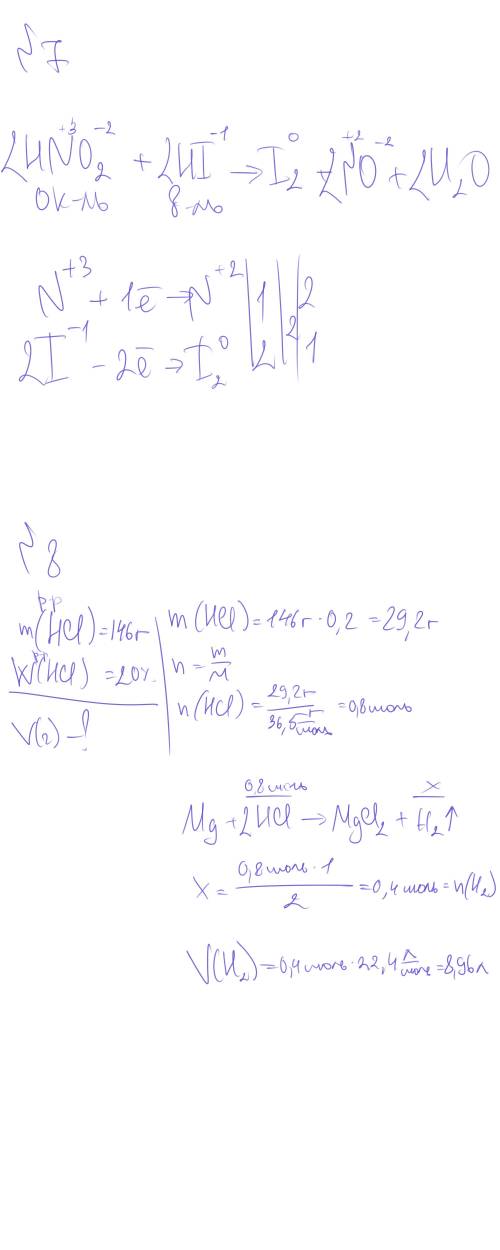 №7
+3 -2 -1 0 +2 -2
2HNO₂ + 2HI → I₂ + 2NO + 2H₂O
ок-ль в-ль
N⁺³ + 1ē → N⁺² | 1 | 2 | 2
2I⁻¹ - 2ē → I₂⁰ | 2 | | 1
№8
m(HCl) р-р = 146г
W(HCl) р-р = 20%
V(г) - ?
m(HCl) = 146г · 0,2 = 29,2г
n = m/M
n(HCl) = 29,2г / 36,5 г/моль = 0,8моль
0,8моль x
Mg + 2HCl → MgCl₂ + H₂↑
x = 0,8моль · 1 / 2 = 0,4моль = n(H₂)
V(H₂) = 0,4моль · 22,4 л/моль = 8,96л